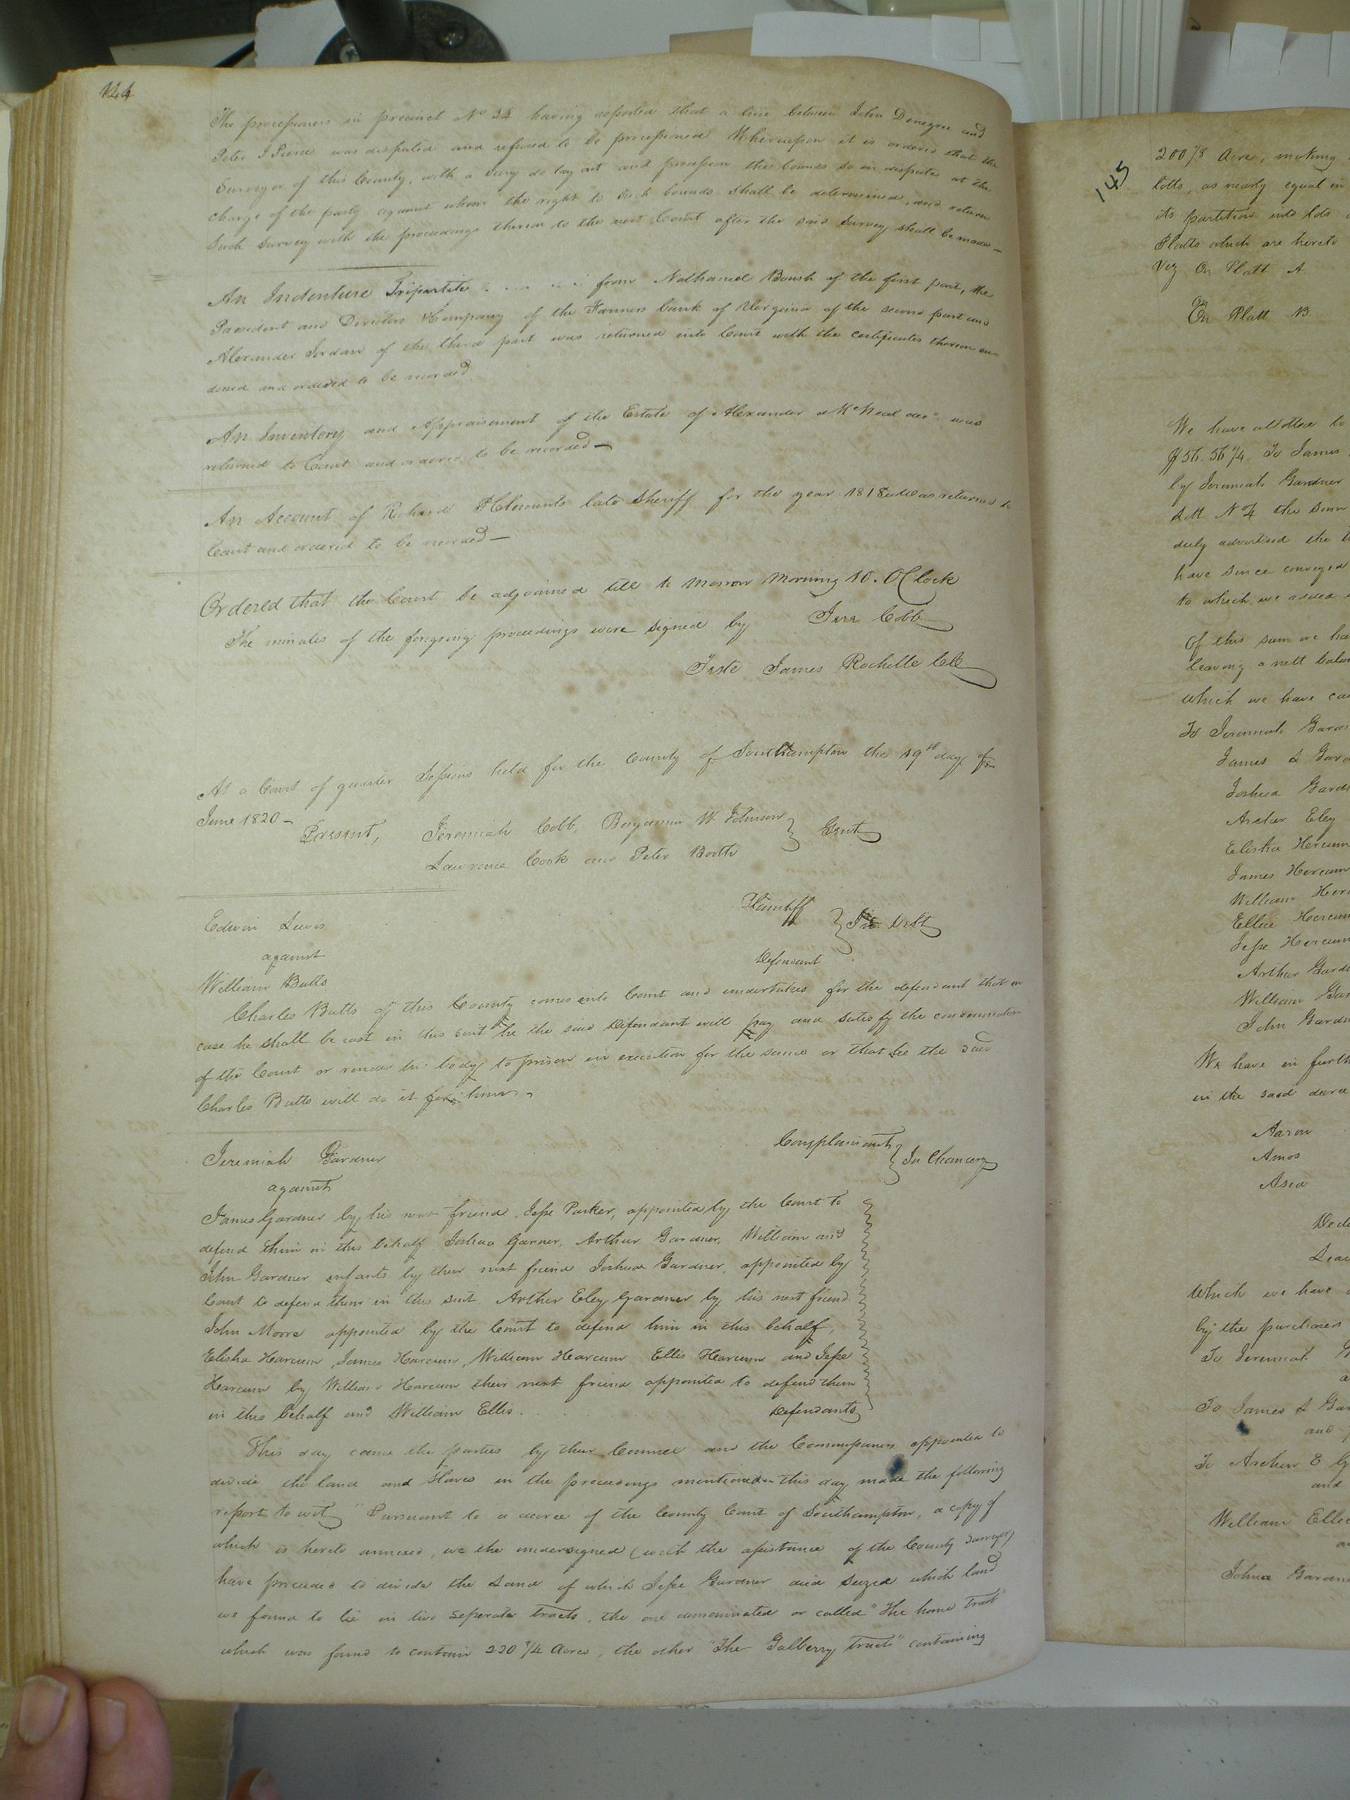 144
The processioners in precinct No 34 having reported that a line between John Denegre and
Peter J Pierce was disputed and refused to be processioned Whereupon it is ordered that the
Surveyor of this County, with a Jury do lay out and procession the bounds so in dispute at the
charge of the party against whom the right to such bounds shall be determined, and return
such survey with the proceedings thereon to the next Court after the said Survey shall be made—
An Indenture Tripartite from Nathaniel Boush of the first part, the
President and Directors & Company of the Farmers bank of Virginia of the second part and
Alexander Jordan of the third part was returned into Court with the certificates thereon en-
dorsed and ordered to be recorded
An Inventory and Appraisement of the Estate of Alexander McNeal decd was
returned to Court and ordered to be recorded—
An Account of Richard P Clements late Sheriff for the year 1818 was returned to
Court and ordered to be recorded—
Ordered that the Court be adjourned till to morrow morning 10. OClock
The minutes of the foregoing proceedings were signed by Jere Cobb
Teste James Rochelle Clk
At a Court of quarter Sessions held for the County of Southampton the 19th day of
June 1820—
Present, Jeremiah Cobb, Benjamin W. Johnson
Lawrence Cook and Peter Booth } Gent
Edwin Lewis Plaintiff
against } In Debt
William Butts Defendant
Charles Butts of this County comes into Court and undertakes for the defendant that in
case he shall be cast in this suit he the said Defendant will pay and satisfy the condemnation
of the Court or render his body to prison in execution for the same or that he the said
Charles Butts will do it for him.
Jeremiah Gardner Complainant
against } In Chancery
James Gardner by his next friend Jesse Parker, appointed by the Court to
defend him in this behalf Joshua Garner, Arthur Gardner, William and
John Gardner infants by their next friend Joshua Gardner, appointed by
Court to defend them in this suit Arther Eley Gardner by his next friend
John Moore appointed by the Court to defend him in this behalf,
Elisha Harcum, James Harcum, William Harcum Ellis Harcum and Jesse
Harcum by William Harcum their next friend appointed to defend them
in this behalf and William Ellis. Defendants
This day came the parties by their Counsel and the Commissioners appointed to
divide the land and slaves in the proceedings mentioned this day made the following
report to wit "Pursuant to a decree of the County Court of Southampton, a copy of
which is hereto annexed, we the undersigned (with the assistance of the County Surveyor)
have proceeded to divide the Land of which Jesse Gardner died Seized which land
we found to lie in two seperate tracts, the one denominated or called "The home tract"
which was found to contain 230 3/4 Acres, the other "The Galberry tract" containing
145
200 7/8 Acres, making
lotts, as nearly equal in
its partition into lots
Platts which are hereto
Viz On Platt A
On Platt B
We have all these
$56.56 1/4 To James
by Jeremiah Gardner
Lott No 4 the Sum
duly advertised the
have since conveyed
to which we
Of this sum we ha
leaving a nett balan
which we have
To Jeremiah Gard
James L Gard
Joshua Gard
Archer Eley
Elisha Harcum
James Harcum
William Har
Ellis Harcum
Jesse Harcum
Arthur Gard
William Gar
John Gardn
We have in furth
in the said decree
Aaron
Amos
Asia
Dedu
Leav
which we have
by the purchasers
To Jeremiah
To James L Gar
and
To Archer E G
and
William Ellis
Joshua Gardn